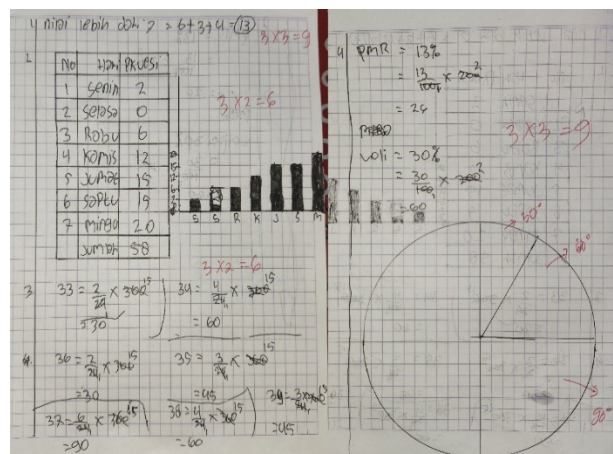 y nipi lebih dari 7 = 6+3+4=13
3x3=9
2.
No Hari PKUESi
1 Senin 2
2 Selasa 0
3 Rabu 6
4 Kamis 12
5 Jumat 15
6 Saptu 15
7 mingu 20
Jumlah 58
3x2=6
S S R K J S M
3x2=6
3 33 = 2/24 x 360 15
=30
34 = 4/24 x 360 15
= 60
4. 36 = 2/24 x 360 15
=30
35 = 3/24 x 360 15
=45
37 = 6/24 x 360 15
=90
38 = 4/24 x 360 15
=60
39 = 3/24 x 360 15
=45
4 PMR = 13%
= 13/100 x 200 2
= 26
3x3=9
voli = 30%
= 30/100 x 200 2
=60
30°
60°
90°